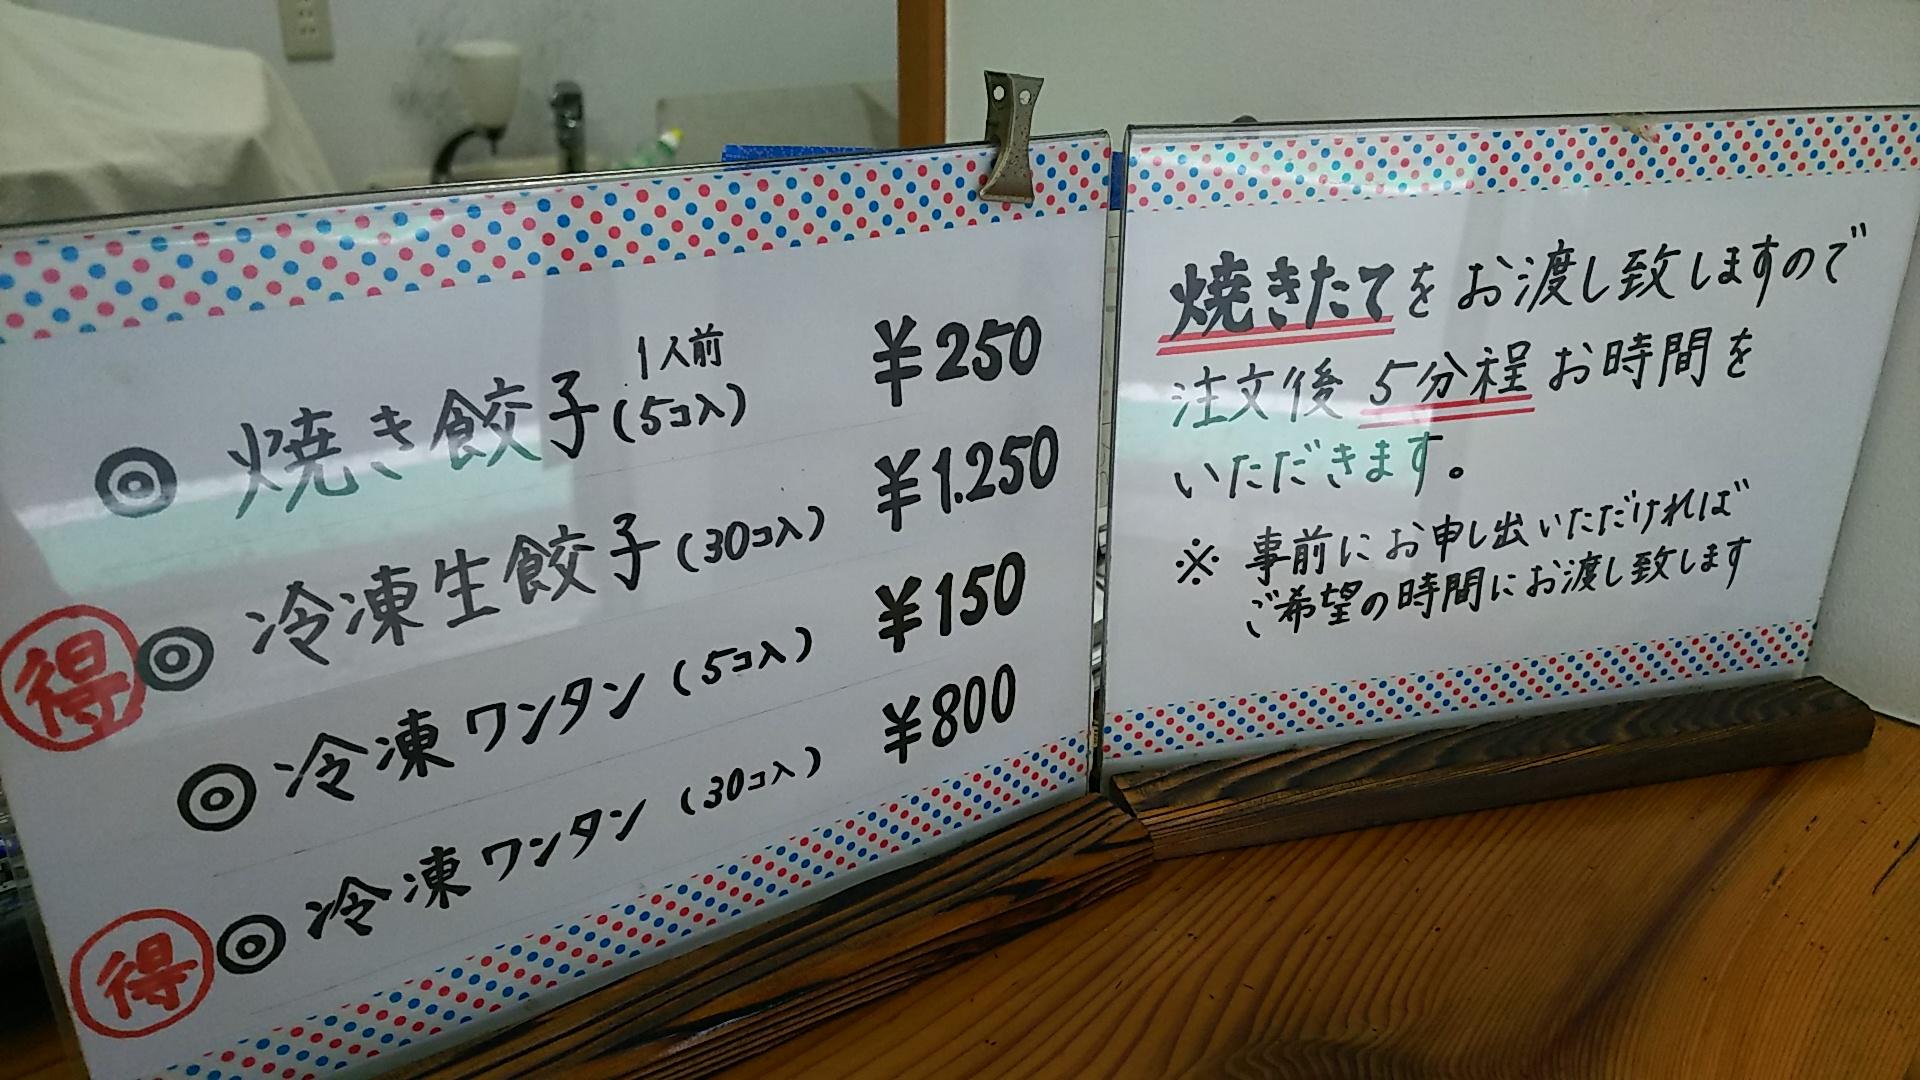 ◎ 焼き餃子 1人前 (5コ入) ¥250
得 ◎ 冷凍生餃子 (30コ入) ¥1.250
◎ 冷凍ワンタン (5コ入) ¥150
得 ◎ 冷凍ワンタン (30コ入) ¥800
焼きたてをお渡し致しますので
注文後 5分程 お時間を
いただきます。
※ 事前にお申し出いただければ
ご希望の時間にお渡し致します